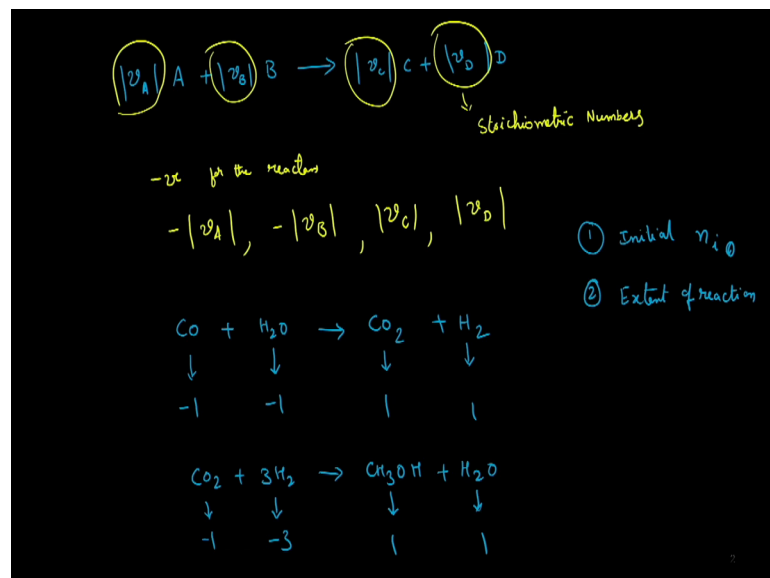 |ν_A| A + |ν_B| B → |ν_C| C + |ν_D| D
Stoichiometric Numbers
-ve for the reactans
-|ν_A|, -|ν_B|, |ν_C|, |ν_D|
① Initial n_i0
② Extent of reaction
CO + H₂O → CO₂ + H₂
↓ ↓ ↓ ↓
-1 -1 1 1
CO₂ + 3H₂ → CH₃OH + H₂O
↓ ↓ ↓ ↓
-1 -3 1 1
2